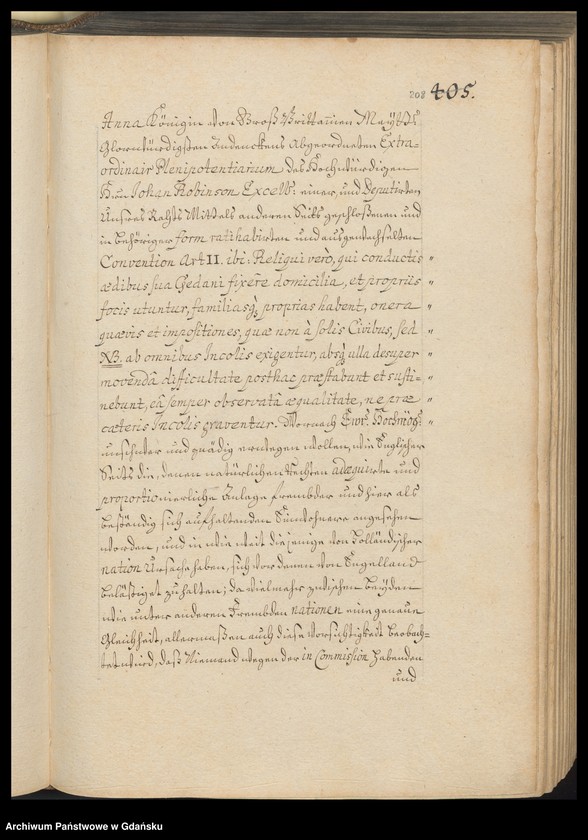 208 405.
Anna Königin von Groß Brittainen Maÿtts
Glorwürdigsten Andenckens Abgeordneten Extra=
ordinair Plenipotentiarium des Hochwürdigen
Hrn Johan Robinson Excellz einer, und Deputirten
Unsres Rahts Mittels anderen Seits geschloßenen und
in behöriger form ratihabirten und ausgewechselten
Convention Art II. ibi: Religui verò, qui conductis "
ædibus sua Gedani fixêre domicilia, et propriis "
focis utuntur, familiasq; proprias habent, onera "
quævis et impositiones, quæ non à solis Civibus, sed "
NB. ab omnibus Incolis exigentur, absq; ulla desuper "
movendâ difficultate posthac præstabunt et susti= "
nebunt, eâ semper observatâ æqualitate, ne præ "
cæteris Incolis graventur. Wornach Ewr. Hochmög: "
unschwer und gnädig erwegen wollen, wie Englischer
Seits die, denen natürlichen Rechten adæquirte und
proportionierliche Anlage frembder und hier als
beständig sich aufhaltenden Einwohnere angesehen
worden, und in wie weit diejenige von Holländischer
nation Ursache haben, sich vor denen von Engelland
belästiget zu halten; da vielmehr zwischen beÿden
wie unter anderen Frembden nationen eine genaue
Gleichheit, allermaßen auch diese Vorsichtigkeit beobach=
tet wird, daß Niemand wegen der in Commission habenden
und
Archiwum Państwowe w Gdańsku